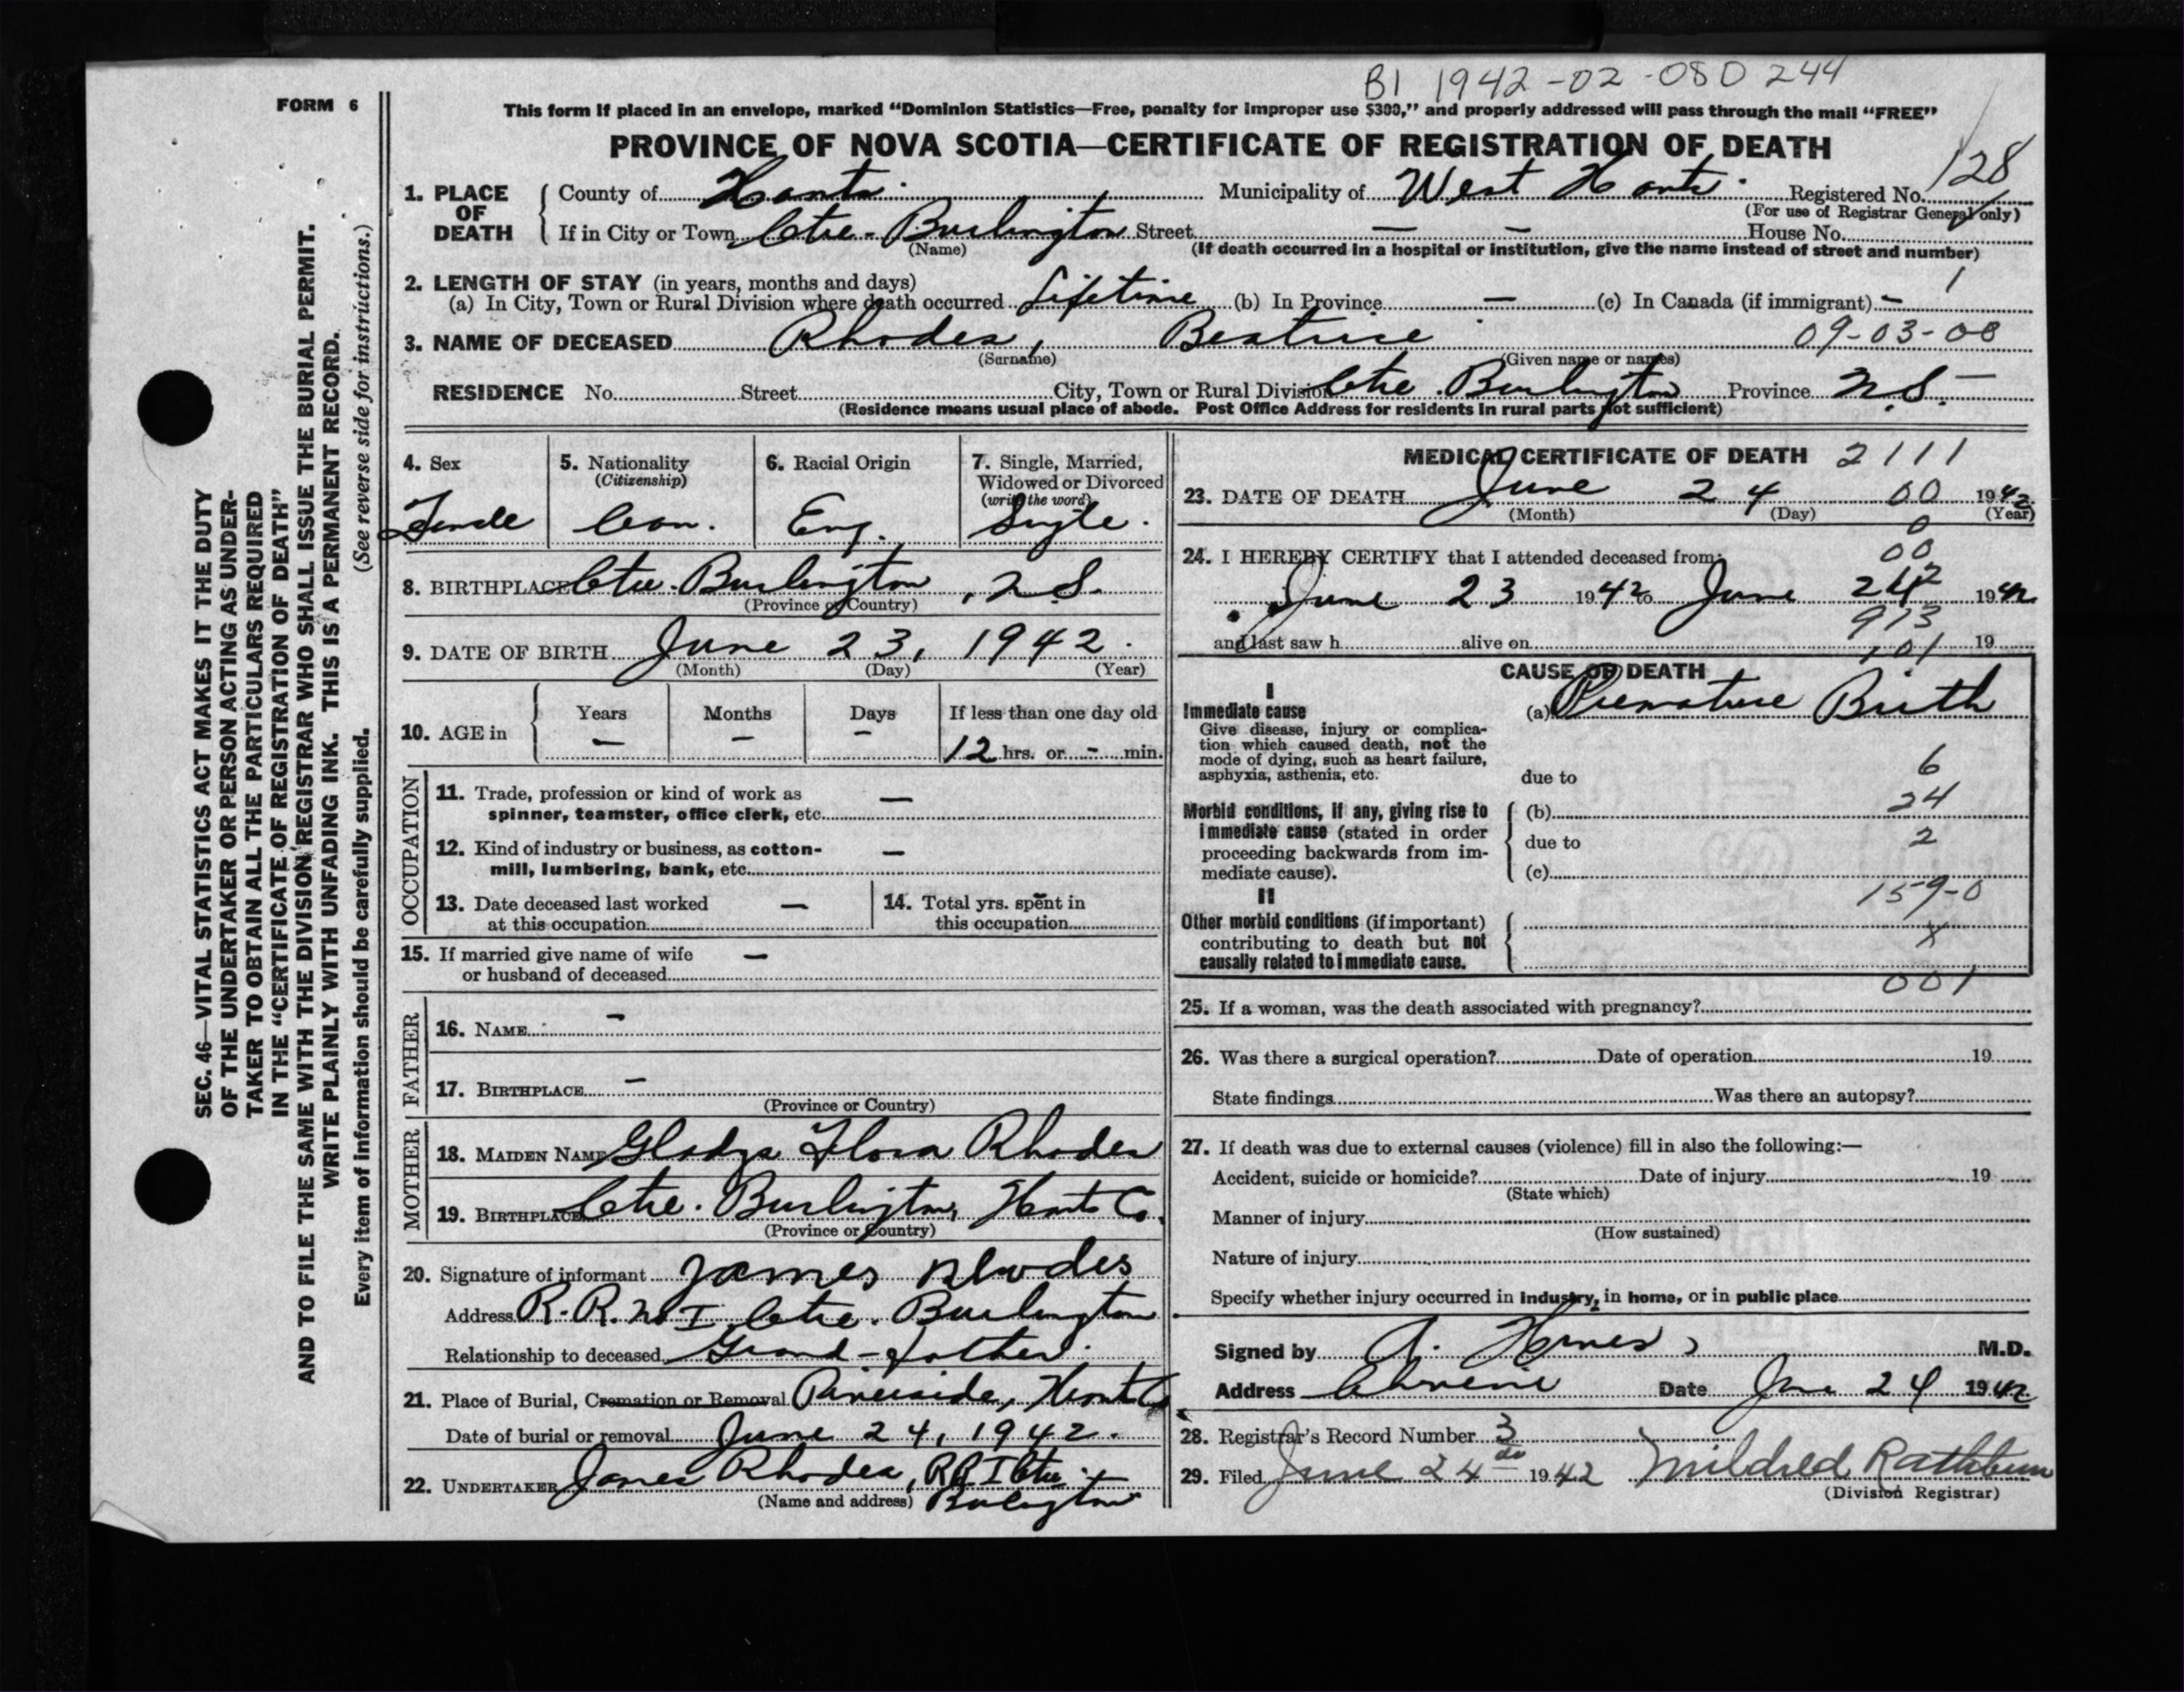 B1 1942-02-080244
FORM 6
This form if placed in an envelope, marked “Dominion Statistics—Free, penalty for improper use $300,” and properly addressed will pass through the mail “FREE”
PROVINCE OF NOVA SCOTIA—CERTIFICATE OF REGISTRATION OF DEATH
1. PLACE OF DEATH County of Hants. Municipality of West Hants. Registered No. 128
(For use of Registrar General only)
If in City or Town Ctre. Burlington Street — — House No.
(Name) (If death occurred in a hospital or institution, give the name instead of street and number)
2. LENGTH OF STAY (in years, months and days) 1
(a) In City, Town or Rural Division where death occurred Lifetime (b) In Province — (c) In Canada (if immigrant) —
3. NAME OF DECEASED Rhodes, Beatrice 09-03-08
(Surname) (Given name or names)
RESIDENCE No. Street City, Town or Rural Division Ctre. Burlington Province N.S. —
(Residence means usual place of abode. Post Office Address for residents in rural parts not sufficient)
4. Sex 5. Nationality 6. Racial Origin 7. Single, Married,
(Citizenship) Widowed or Divorced
(write the word)
Female Can. Eng. Single.
8. BIRTHPLACE Ctre. Burlington, N.S.
(Province or Country)
9. DATE OF BIRTH June 23, 1942.
(Month) (Day) (Year)
10. AGE in Years Months Days If less than one day old
— — — 12 hrs. or - min.
OCCUPATION
11. Trade, profession or kind of work as —
spinner, teamster, office clerk, etc.
12. Kind of industry or business, as cotton- —
mill, lumbering, bank, etc.
13. Date deceased last worked — 14. Total yrs. spent in —
at this occupation this occupation
15. If married give name of wife —
or husband of deceased
FATHER
16. NAME —
17. BIRTHPLACE —
(Province or Country)
MOTHER
18. MAIDEN NAME Gladys Flora Rhodes
19. BIRTHPLACE Ctre. Burlington, Hants Co.
(Province or Country)
20. Signature of informant James Rhodes
Address R.R. No I Ctre. Burlington
Relationship to deceased Grand-father.
21. Place of Burial, Cremation or Removal Riverside, Hants Co
Date of burial or removal June 24, 1942.
22. UNDERTAKER James Rhodes, RR I Ctre.
(Name and address) Burlington
MEDICAL CERTIFICATE OF DEATH 2111
23. DATE OF DEATH June 24 00 1942
(Month) (Day) (Year)
0
24. I HEREBY CERTIFY that I attended deceased from: 00
June 23 1942 to June 24 1942
913
and last saw h alive on 101 19
CAUSE OF DEATH
I
Immediate cause (a) Premature Birth
Give disease, injury or complica-
tion which caused death, not the
mode of dying, such as heart failure, 6
asphyxia, asthenia, etc. due to
24
Morbid conditions, if any, giving rise to (b)
immediate cause (stated in order due to 2
proceeding backwards from im-
mediate cause). (c)
II 159-0
Other morbid conditions (if important) X
contributing to death but not
causally related to immediate cause.
001
25. If a woman, was the death associated with pregnancy?
26. Was there a surgical operation? Date of operation 19
State findings Was there an autopsy?
27. If death was due to external causes (violence) fill in also the following:—
Accident, suicide or homicide? Date of injury 19
(State which)
Manner of injury
(How sustained)
Nature of injury
Specify whether injury occurred in industry, in home, or in public place
Signed by A. M.D.
Address Date June 24 1942
28. Registrar's Record Number 3
29. Filed June 24 1942 Mildred Rathbun
(Division Registrar)
SEC. 46—VITAL STATISTICS ACT MAKES IT THE DUTY
OF THE UNDERTAKER OR PERSON ACTING AS UNDER-
TAKER TO OBTAIN ALL THE PARTICULARS REQUIRED
IN THE “CERTIFICATE OF REGISTRATION OF DEATH”
AND TO FILE THE SAME WITH THE DIVISION REGISTRAR WHO SHALL ISSUE THE BURIAL PERMIT.
WRITE PLAINLY WITH UNFADING INK. THIS IS A PERMANENT RECORD.
Every item of information should be carefully supplied. (See reverse side for instructions.)